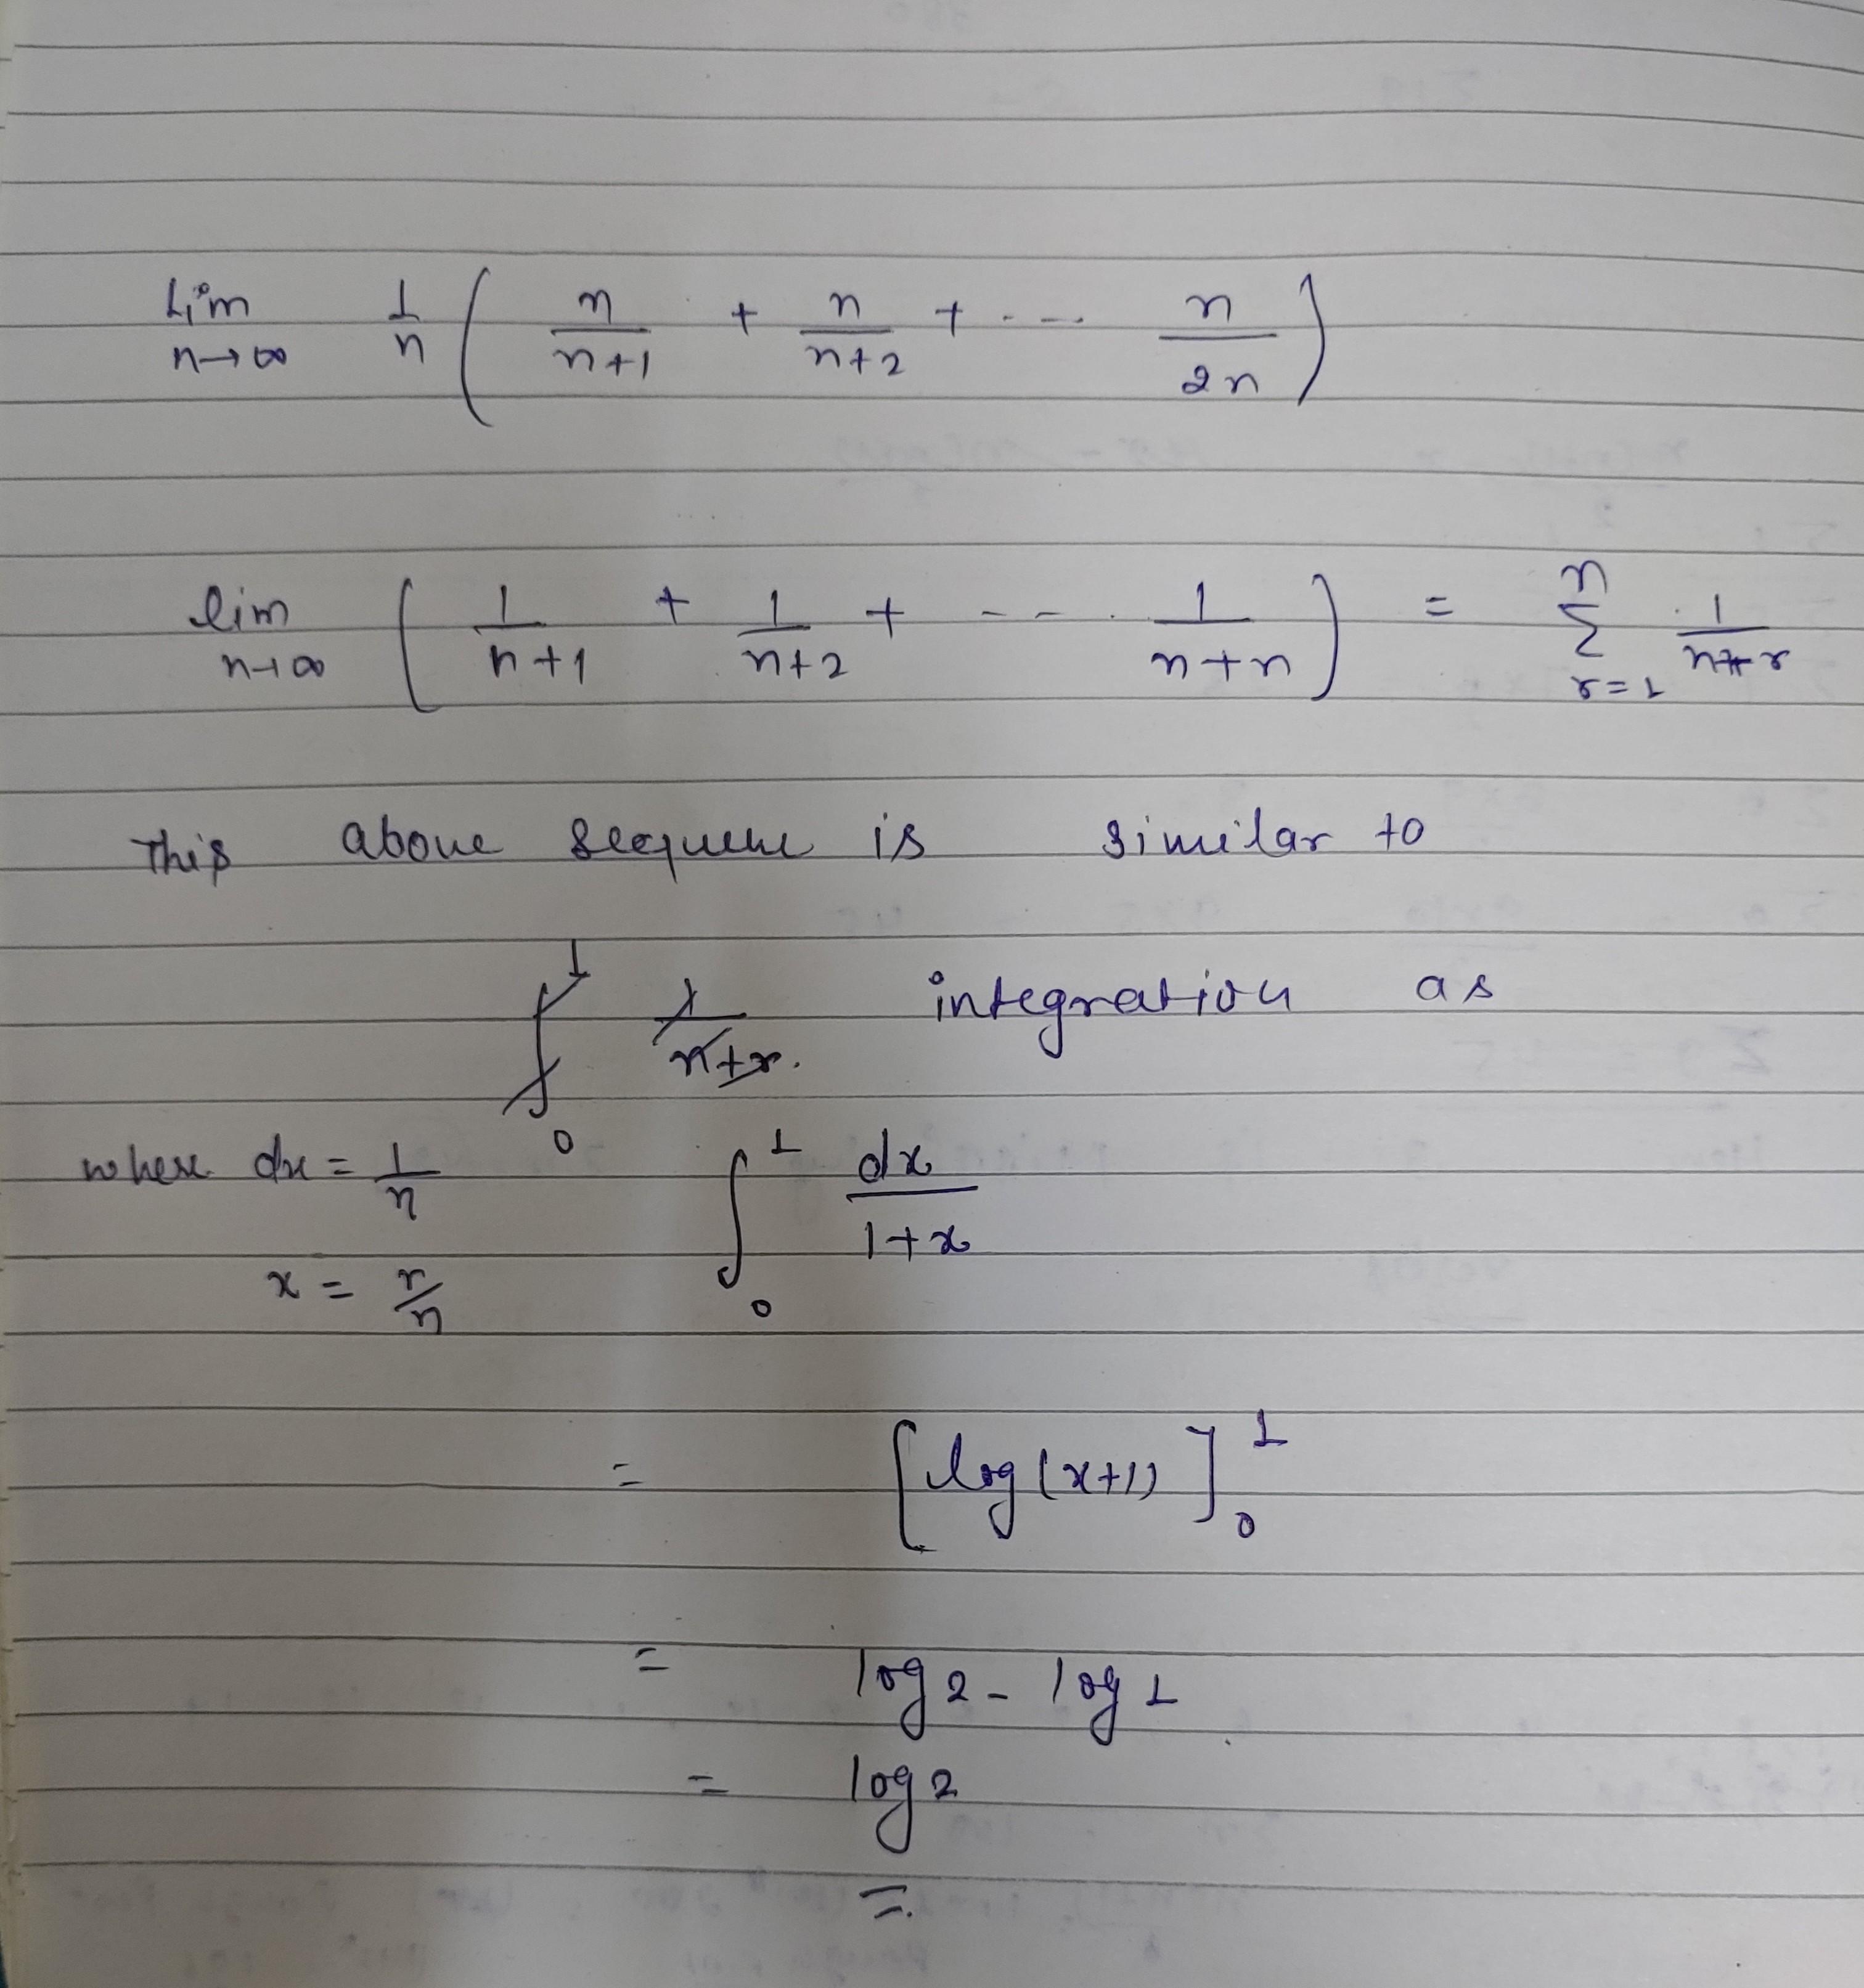 Lim n→∞ 1/n ( n/n+1 + n/n+2 + ... n/2n )
lim n→∞ [ 1/n+1 + 1/n+2 + -- . 1/n+n ] = n Σ r=1 1/n+r
This above is similar to
∫ 1 0 1/n+r. integration as
where dx = 1/n ∫ 1 0 dx/1+x
x = r/n
= [log(x+1)] 1 0
= log 2 - log 1
= log 2
=.